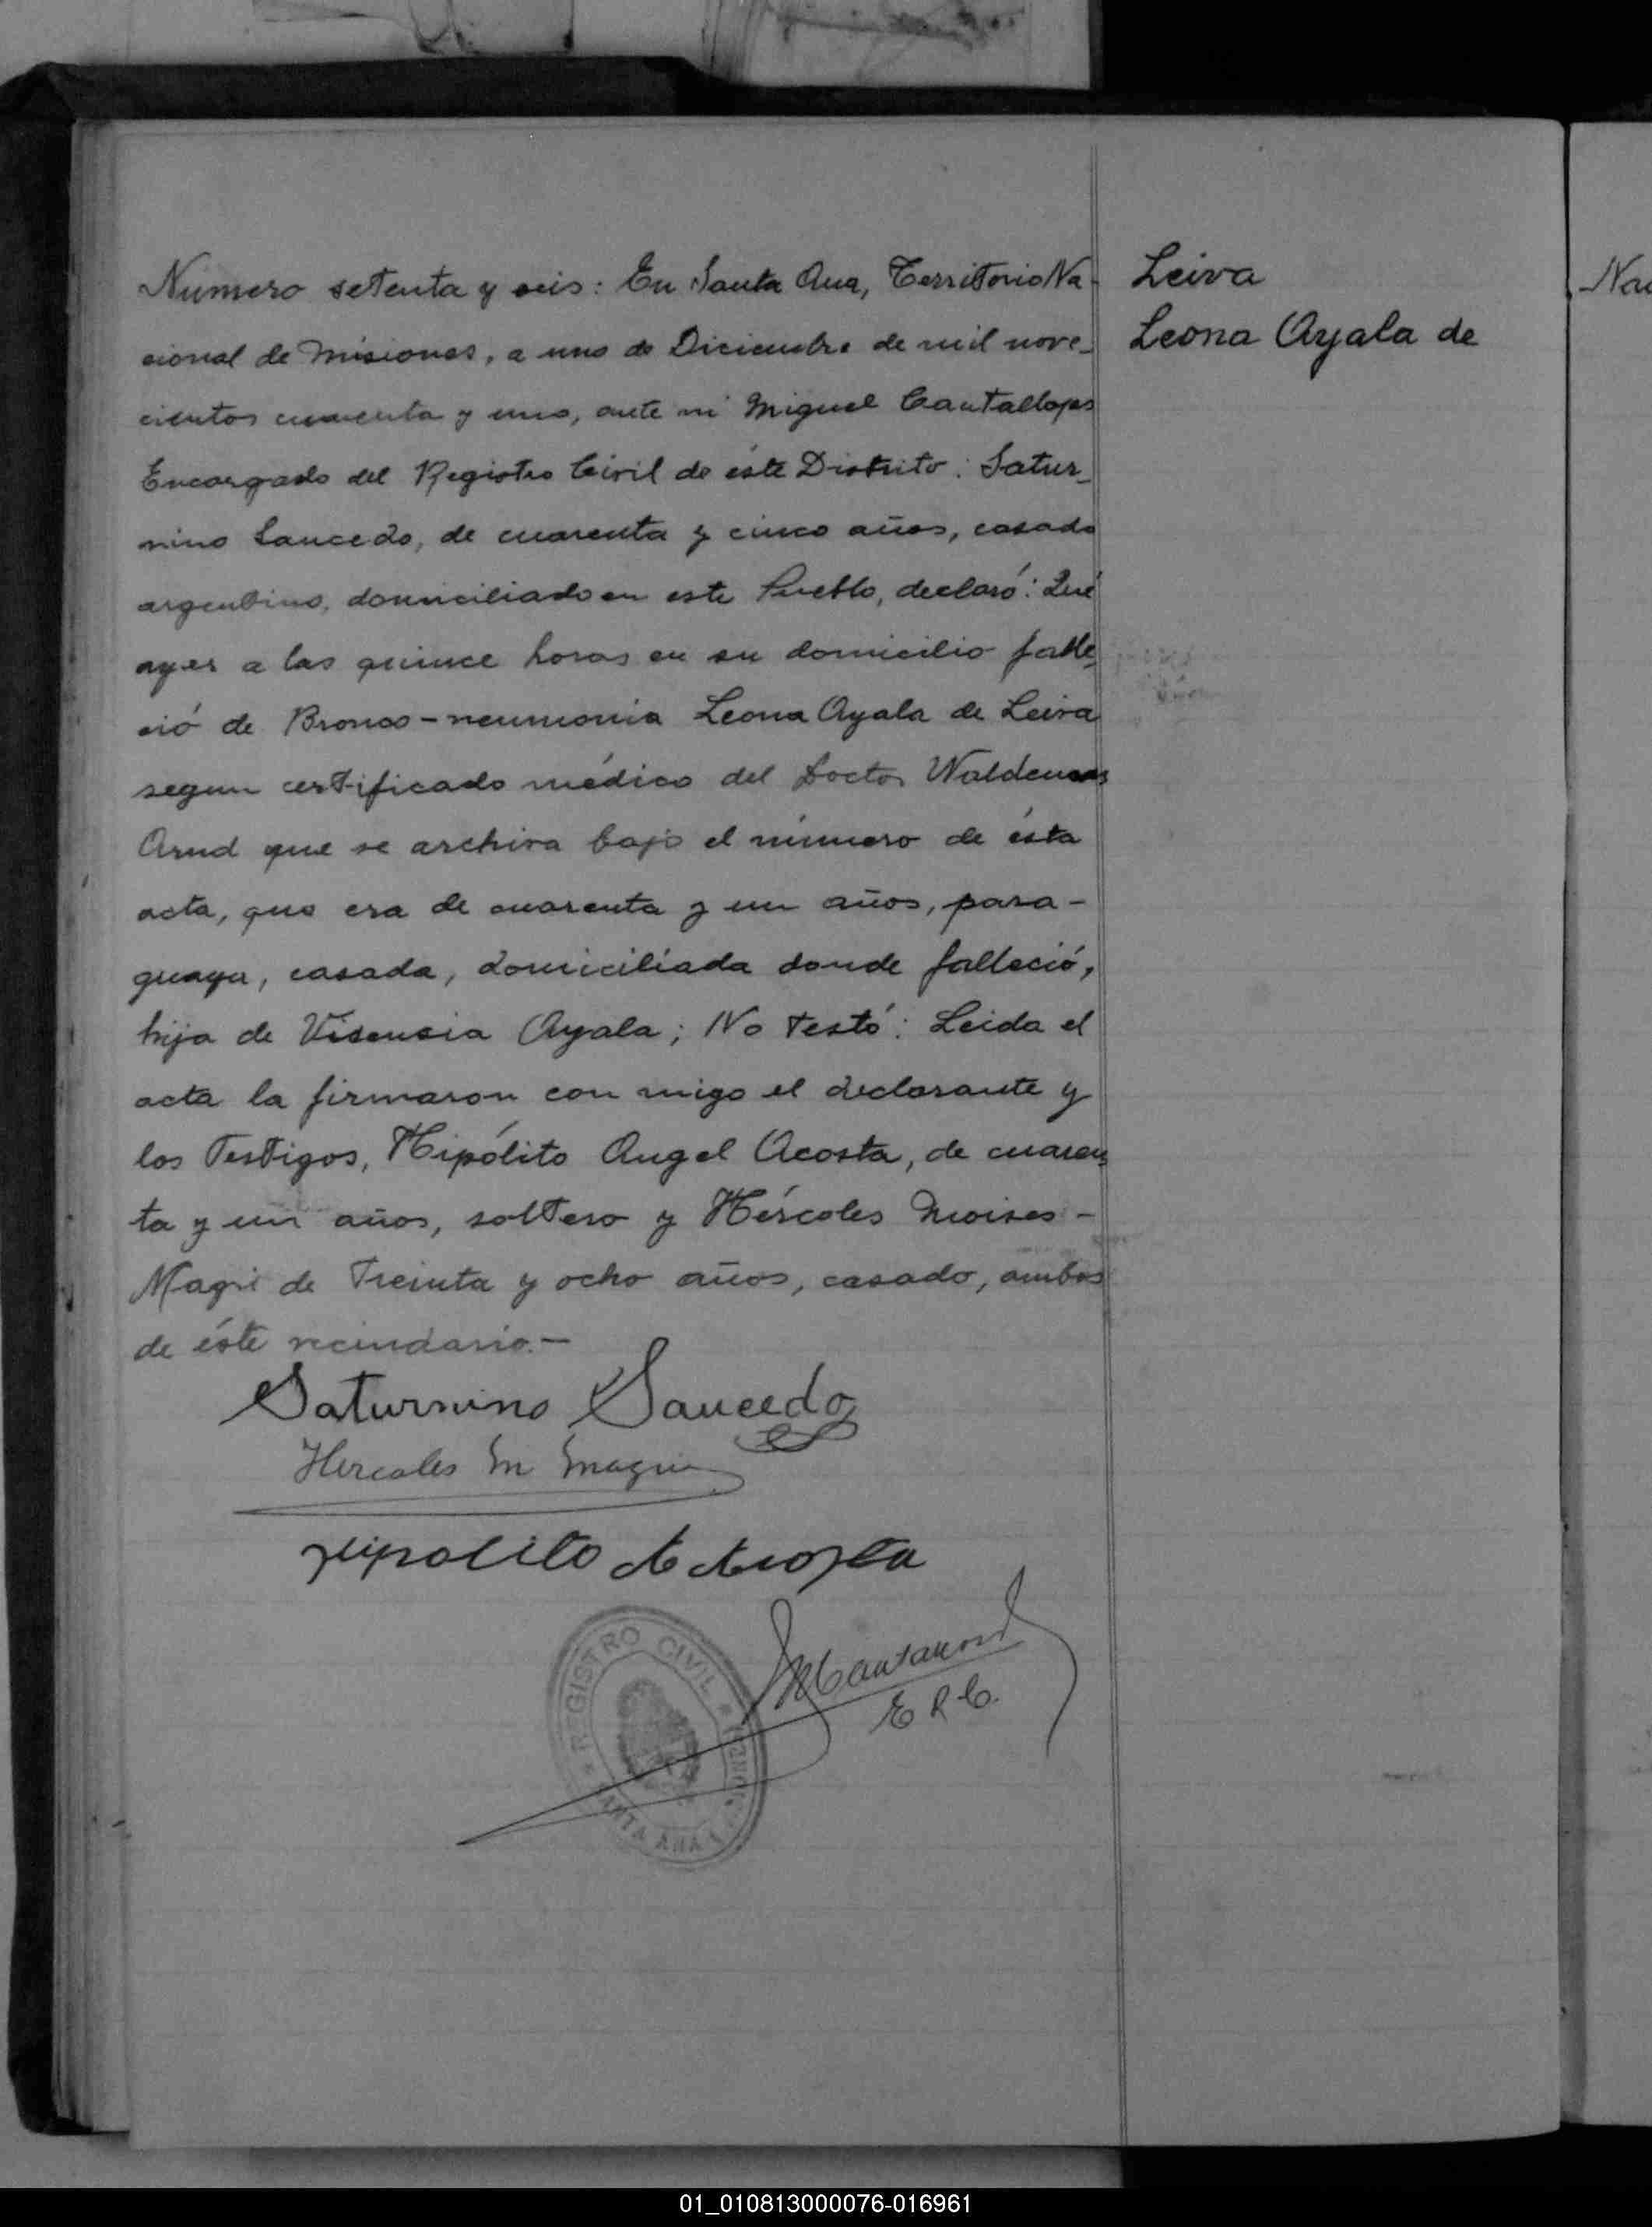 Número setenta y seis: En Santa Ana, Territorio Na-
cional de Misiones, a uno de Diciembre de mil nove-
cientos cuarenta y uno, ante mi Miguel Cantallops
Encargado del Registro Civil de éste Distrito: Satur-
nino Saucedo, de cuarenta y cinco años, casado
argentino, domiciliado en este Pueblo, declaró: Qué
ayer a las quince horas en su domicilio falle-
ció de Bronco-neumonia Leona Ayala de Leiva
segun certificado médico del Doctor
Arnd que se archiva bajo el número de ésta
acta, que era de cuarenta y un años, para-
guaya, casada, domiciliada donde falleció,
hija de Visensia Ayala; No testó: Leida el
acta la firmaron con migo el declarante y
los Testigos, Hipólito Angel Acosta, de cuaren-
ta y un años, soltero y Hércoles Moises -
Magri de Treinta y ocho años, casado, ambos
de éste vecindario.-
Leiva
Leona Ayala de
Saturnino Saucedo
Hercoles M Magri
Hipolito A Acosta
E R C.
REGISTRO CIVIL
SANTA ANA
Na
01_010813000076-016961